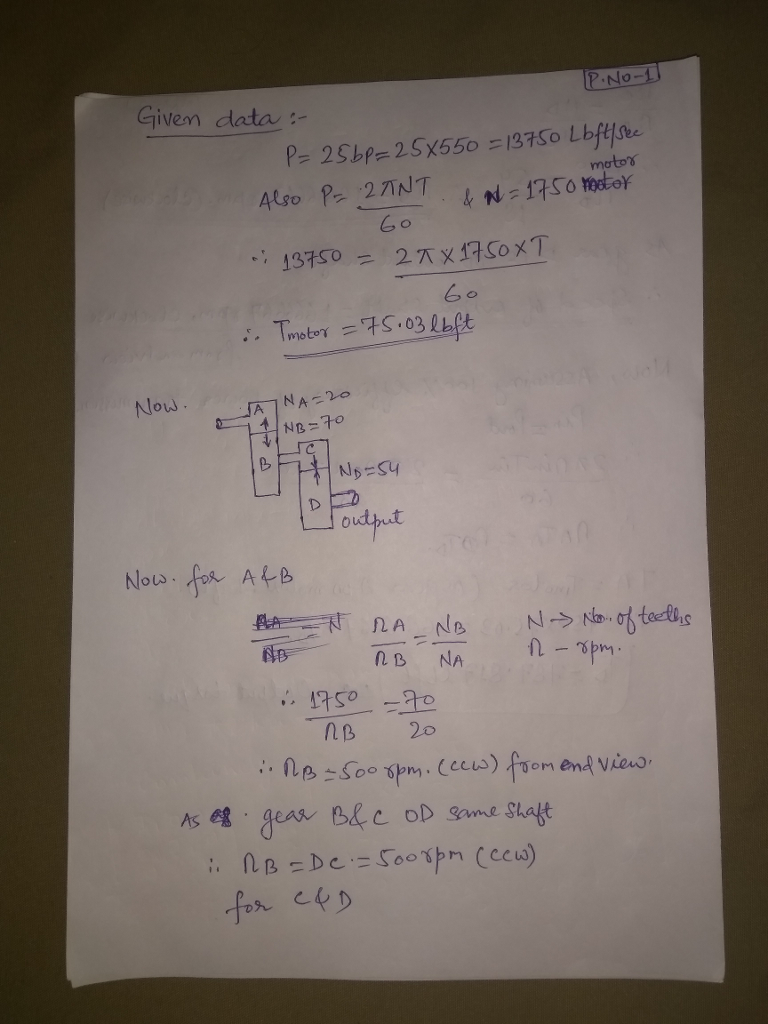 P.No-1
Given data :-
P= 25hp= 25X550 =13750 Lbft/sec
Also P= 2πNT/60 & N=1750 motor
∴ 13750 = 2π X1750XT/60
∴ Tmotor =75.03 lbft
Now.
A NA=20
NB=70
B C ND=54
D output
Now. for A&B
nA/nB = NB/NA N → No. of teeths
n - rpm.
∴ 1750/nB = 70/20
∴ nB=500 rpm. (ccw) from end view.
As gear B&C OD same shaft
∴ nB = DC.= 500rpm (ccw)
for C&D